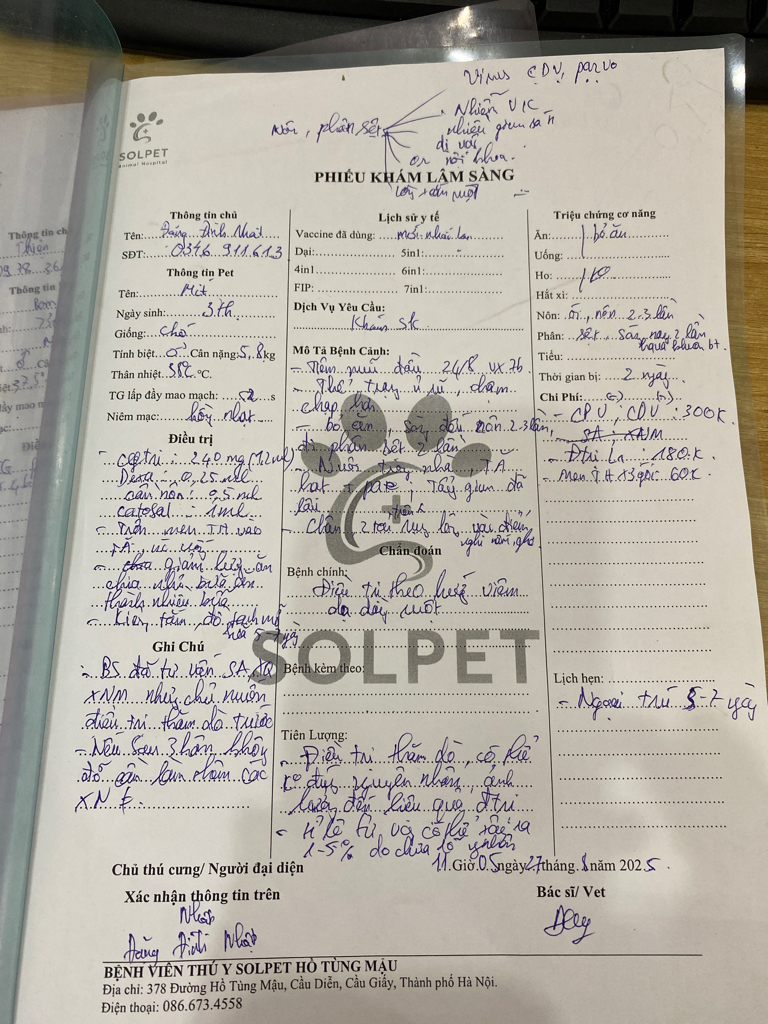 Virus CDV, parvo
Nôn, phân sệt
Nhiễm
nhiễm giun sán
dị vật
or nội khoa.
SOLPET
Animal Hospital
PHIẾU KHÁM LÂM SÀNG
Thông tin chủ
Tên: Đặng Đình Nhật
SĐT: 0346 911 613
Thông tin Pet
Tên: Mít
Ngày sinh: 3th
Giống: chó
Tính biệt ♂ Cân nặng: 5,8 kg
Thân nhiệt °C.
TG lấp đầy mao mạch: s
Niêm mạc: hồng nhạt
Điều trị
240 mg (1,2ml)
Dexa: 0,25 ml
cầm nôn: 0,5 ml
catosal: 1ml
- Trộn men TH vào
TA,
giảm lượng ăn
chia nhỏ bữa ăn
thành nhiều bữa
- Kiêng tắm,
Ghi Chú
- BS đã tư vấn SA, XQ
XNM nhưng chủ muốn
điều trị thăm dò trước
- Nếu sau 3 hôm không
đỡ cần làm thêm các
XN
Lịch sử y tế
Vaccine đã dùng:
Dại: 5in1:
4in1 6in1:
FIP: 7in1:
Dịch Vụ Yêu Cầu:
Khám sk
Mô Tả Bệnh Cảnh:
- Tiêm mũi đầu 24/8, vx 7b
- Thể trạng ủ rũ, chậm
chạp hơn
- bỏ ăn, nôn 2-3 lần,
đi phân sệt 2 lần
- Nuôi trong nhà, TA
hạt + pate, Tẩy giun đã
lâu
Chẩn đoán
Bệnh chính:
Điều trị theo hướng viêm
dạ dày ruột
SOLPET
Bệnh kèm theo:
Tiên Lượng:
- Điều trị thăm dò, có thể
ko đúng nguyên nhân, ảnh
hưởng đến hiệu quả đtrị
- tỉ lệ tử vong có thể xảy ra
1-5% do chưa rõ
Triệu chứng cơ năng
Ăn: bỏ ăn
Uống:
Ho: ko
Hắt xì:
Nôn: có, nôn 2-3 lần
Phân: sệt, sáng nay 2 lần
Tiểu:
Thời gian bị: 2 ngày
Chi Phí: (-) (-)
- CPV, CDV: 300K
SA, XNM
- Đtrị: 180.K
- Men T.H x3 gói: 60K
Lịch hẹn:
- Ngoại trú 5-7 ngày
11 Giờ 05 ngày 27 tháng 8 năm 2025
Chủ thú cưng/ Người đại diện
Xác nhận thông tin trên
Nhật
Đặng Đình Nhật
Bác sĩ/ Vet
BỆNH VIỆN THÚ Y SOLPET HỒ TÙNG MẬU
Địa chỉ: 378 Đường Hồ Tùng Mậu, Cầu Diễn, Cầu Giấy, Thành phố Hà Nội.
Điện thoại: 086.673.4558